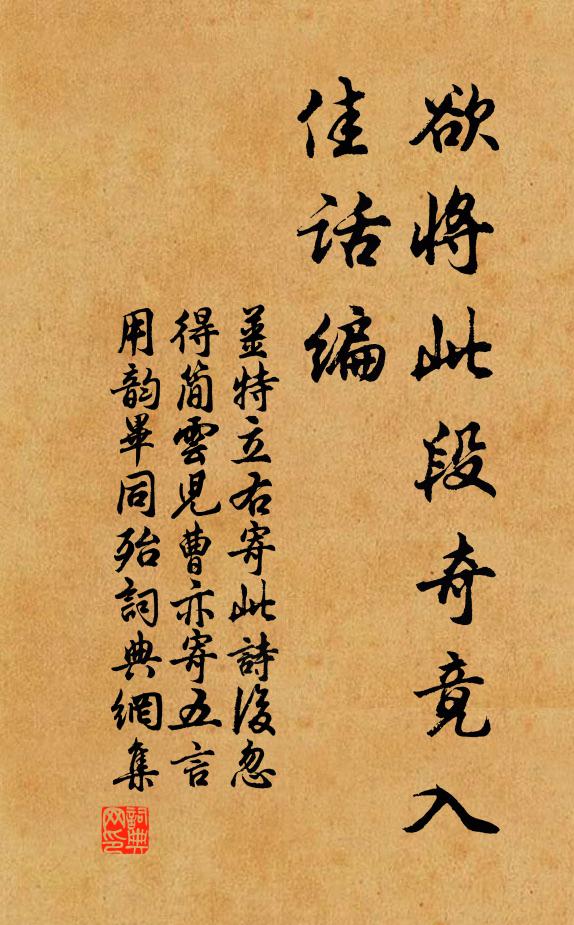 欲将此段奇竟入
佳话编
姜特立右寄此詩後忽
得简雲児曹亦寄五言
用韵畢同殆詞典網集
詞典网印